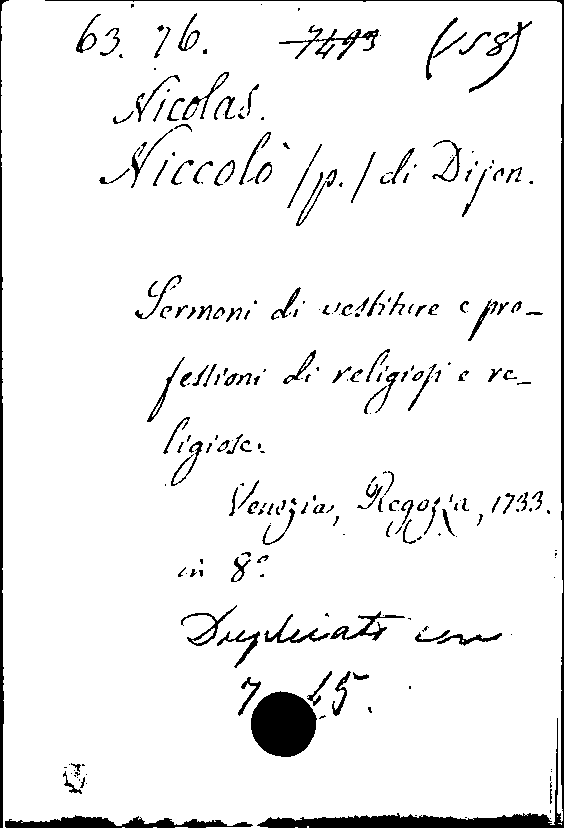 63. 76. 7493 (158)
Nicolas.
Niccolò /p./ di Dijon.
Sermoni di vestiture e pro-
fessioni di religiosi e re-
ligiose.
Venezia, Regozza, 1733.
in 8º.
Duplicato con
7 45.